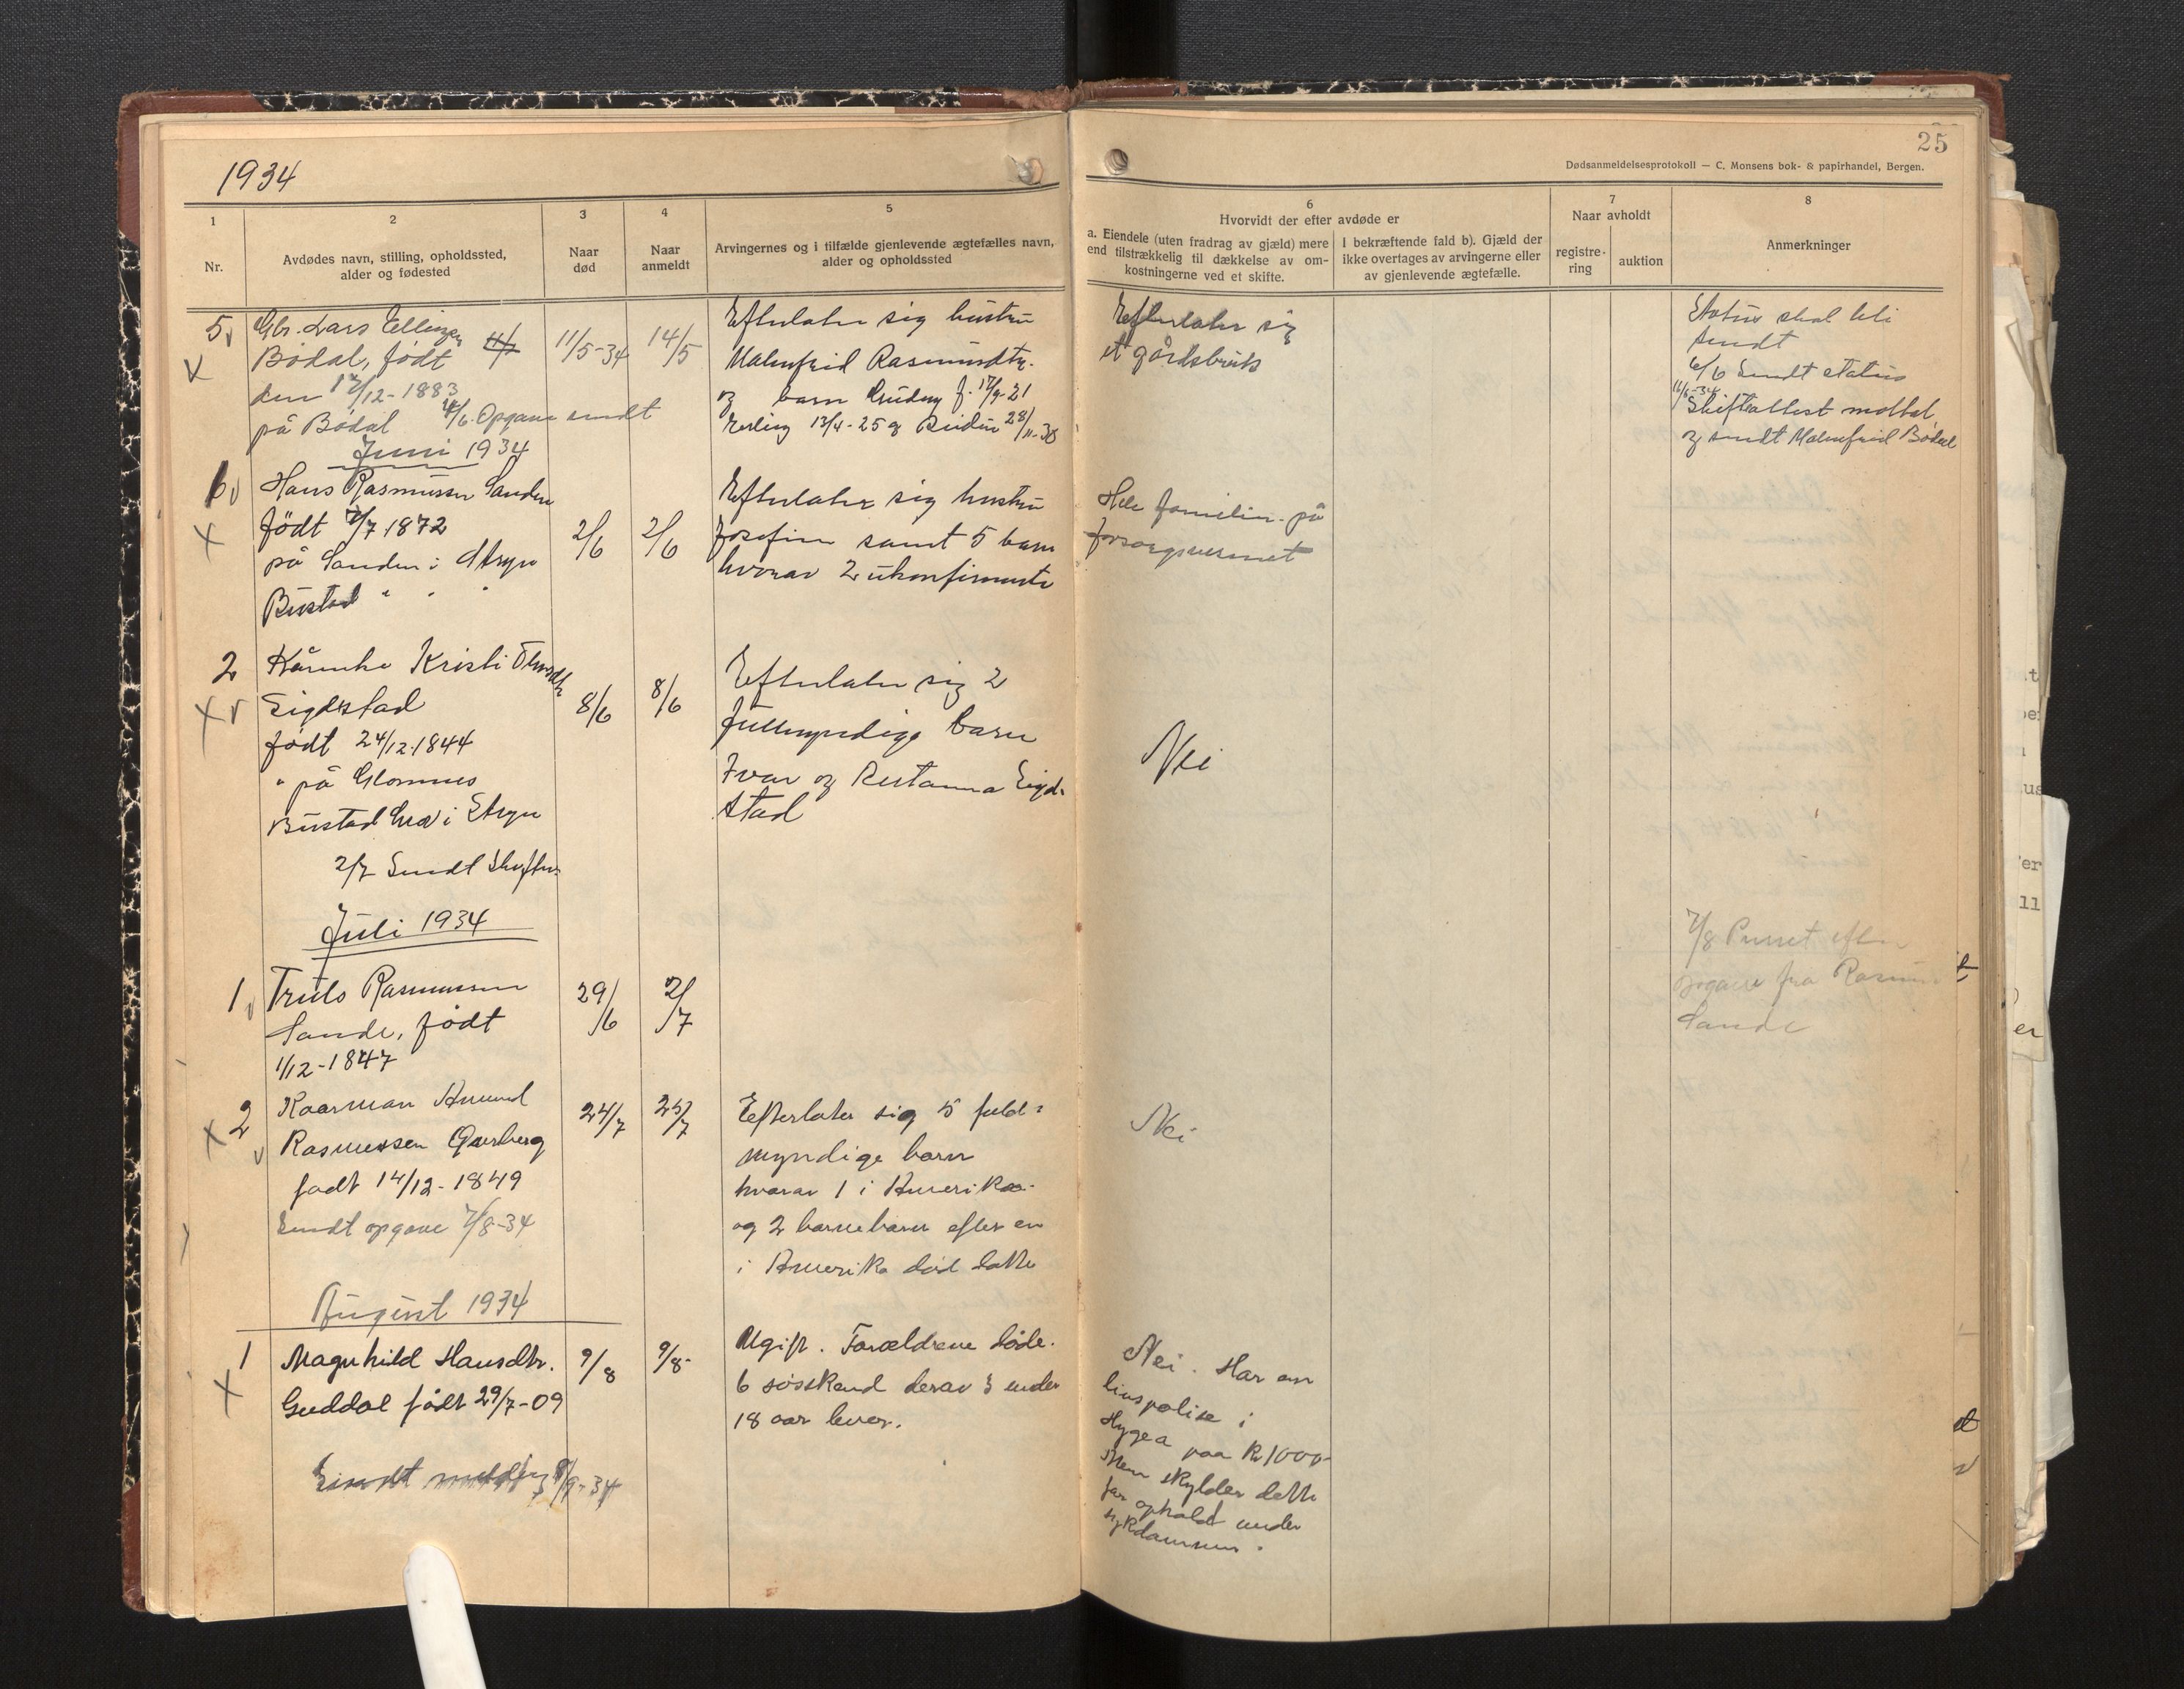 25
Dødsanmeldelsesprotokoll — C. Monsens bok- & papirhandel, Bergen.
1934
1
Nr.
2
Avdødes navn, stilling, opholdssted,
alder og fødested
3
Naar
død
4
Naar
anmeldt
5
Arvingernes og i tilfælde gjenlevende ægtefælles navn,
alder og opholdssted
6
Hvorvidt der efter avdøde er
a. Eiendele (uten fradrag av gjæld) mere
end tilstrækkelig til dækkelse av om-
kostningerne ved et skifte.
I bekræftende fald b). Gjæld der
ikke overtages av arvingerne eller
av gjenlevende ægtefælle.
7
Naar avholdt
registre-
ring
auktion
8
Anmerkninger
5
Gbr. Lars Ellingsen
Bødal, født
den 17/12-1883
på Bødal 4/6. Opgave sendt
11/5-34
14/5
Efterlater sig hustru
Malmfrid Rasmusdtr.
og barn f. 17/9-21
Erling 13/4-25 og Reidun 28/11-30
Efterlater sig
et gårdsbruk
Status skal bli
sendt
6/6 Sendt status
16/6-34
Skifteattest mottat
og sendt Malmfrid Bødal
Juni 1934
1
Hans Rasmussen Sanden
født 7/7 1872
på Sanden i Stryn
Bustad " " "
2/6
2/6
Efterlater sig hustru
Josefine samt 5 barn
hvorav 2 ukonfirmerte
Hele familien på
forsorgsvesenet
2
Kårenke Kristi
Eigdstad
født 24/12-1844
" på Glomnes
Bustad i Stryn
2/7 Sendt
8/6
8/6
Efterlater sig 2
fullmyndige barn
Ivar og Kristanna Eigd-
stad
Nei
Juli 1934
1
Truls Rasmussen
Sande, født
1/12-1847
29/6
2/7
7/8 Purret efter
opgave fra
Sande
2
Kaarman Amund
Rasmussen Gjerberg
født 14/12-1849
Sendt opgave 7/8-34
24/7
25/7
Efterlater sig 5 fuld=
myndige barn
hvorav 1 i Amerika.
og 2 barnebarn efter en
i Amerika død datte
Nei
August 1934
1
Magnhild Hansdtr.
Guddal født 29/7-09
Sendt melding 8/9-34
9/8
9/8
Ugift. Forældrene døde.
6 søsskend derav 3 under
18 aar lever.
Nei. Har en
livspolise i
Hygea paa Kr 1000-
Men skylder dette
for ophold under
sykdommen.